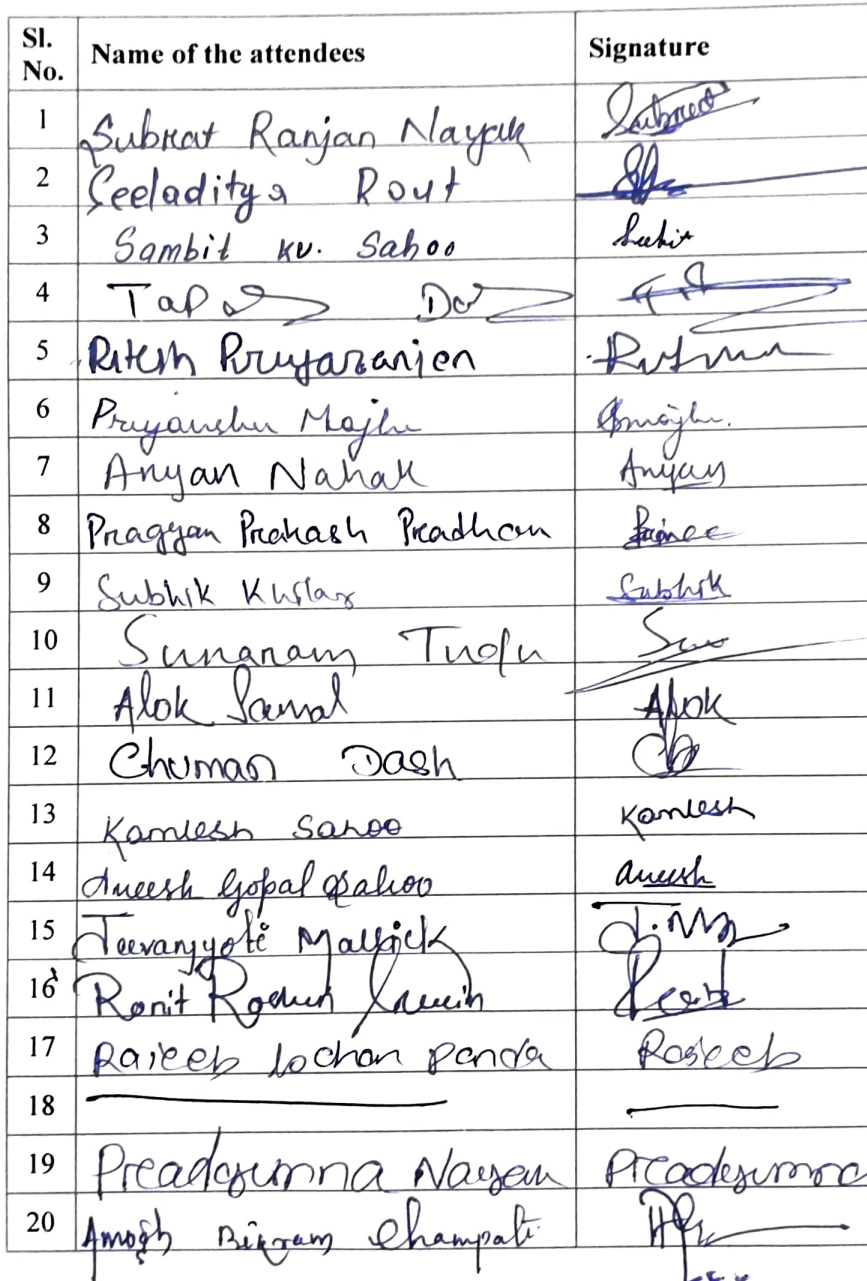 Sl. No. Name of the attendees Signature
1 Subrat Ranjan Nayak Subrat
2 Seeladitya Rout
3 Sambit Ku. Sahoo
4
5 Ritesh Priyaranjen
6 Priyanshu Majhi Pmajhi.
7 Anyan Nahak Anyan
8 Pragyan Prakash Pradhan Prince
9 Subhik Subhik
10 Sunaram Tudu
11 Alok Samal Alok
12 Chuman Dash
13 Kamlesh Sahoo Kamlesh
14 Aneesh Gopal Sahoo aneesh
15 Jeevanjyoti Mallick J.M
16 Ronit
17 Rajeeb Lochan Panda Rajeeb
18
19 Preadyumna Nayan Preadyumna
20 Amogh Bikram Champati